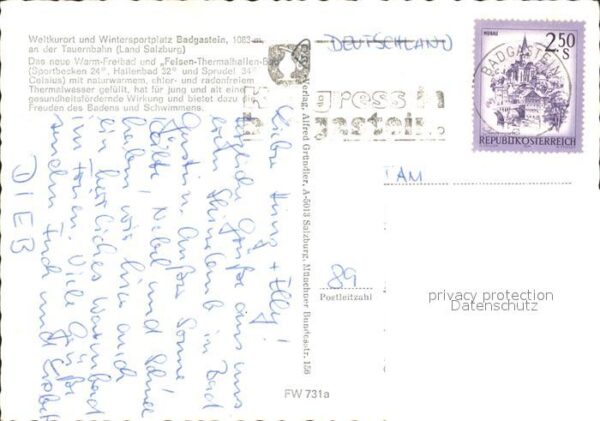 Weltkurort und Wintersportplatz Badgastein, 1083 m
an der Tauernbahn (Land Salzburg)
Das neue Warm-Freibad und „Felsen-Thermalhallen-Bad
(Sportbecken 24°, Hallenbad 32° und Sprudel 34°
Celsius) mit naturwarmem, chlor- und radonfreiem
Thermalwasser gefüllt, hat für jung und alt eine
gesundheitsfördernde Wirkung und bietet dazu die
Freuden des Badens und Schwimmens.
DEUTSCHLAND
MURAU
2.50
S
REPUBLIK ÖSTERREICH
BADGASTEIN
Kongress in
Badgastein
Verlag Alfred Gründler, A-5013 Salzburg, Münchner Bundesstr. 156
Liebe + Elly!
Grüße aus
Skiurlaub in Bad
Gastein Außer Sonne
Kälte, Nebel und Schnee
haben wir hier auch
ein herrliches Warmbad
im Freien. Viele Grüße
DIEB
TAM
89
Postleitzahl
FW 731a
privacy protection
Datenschutz